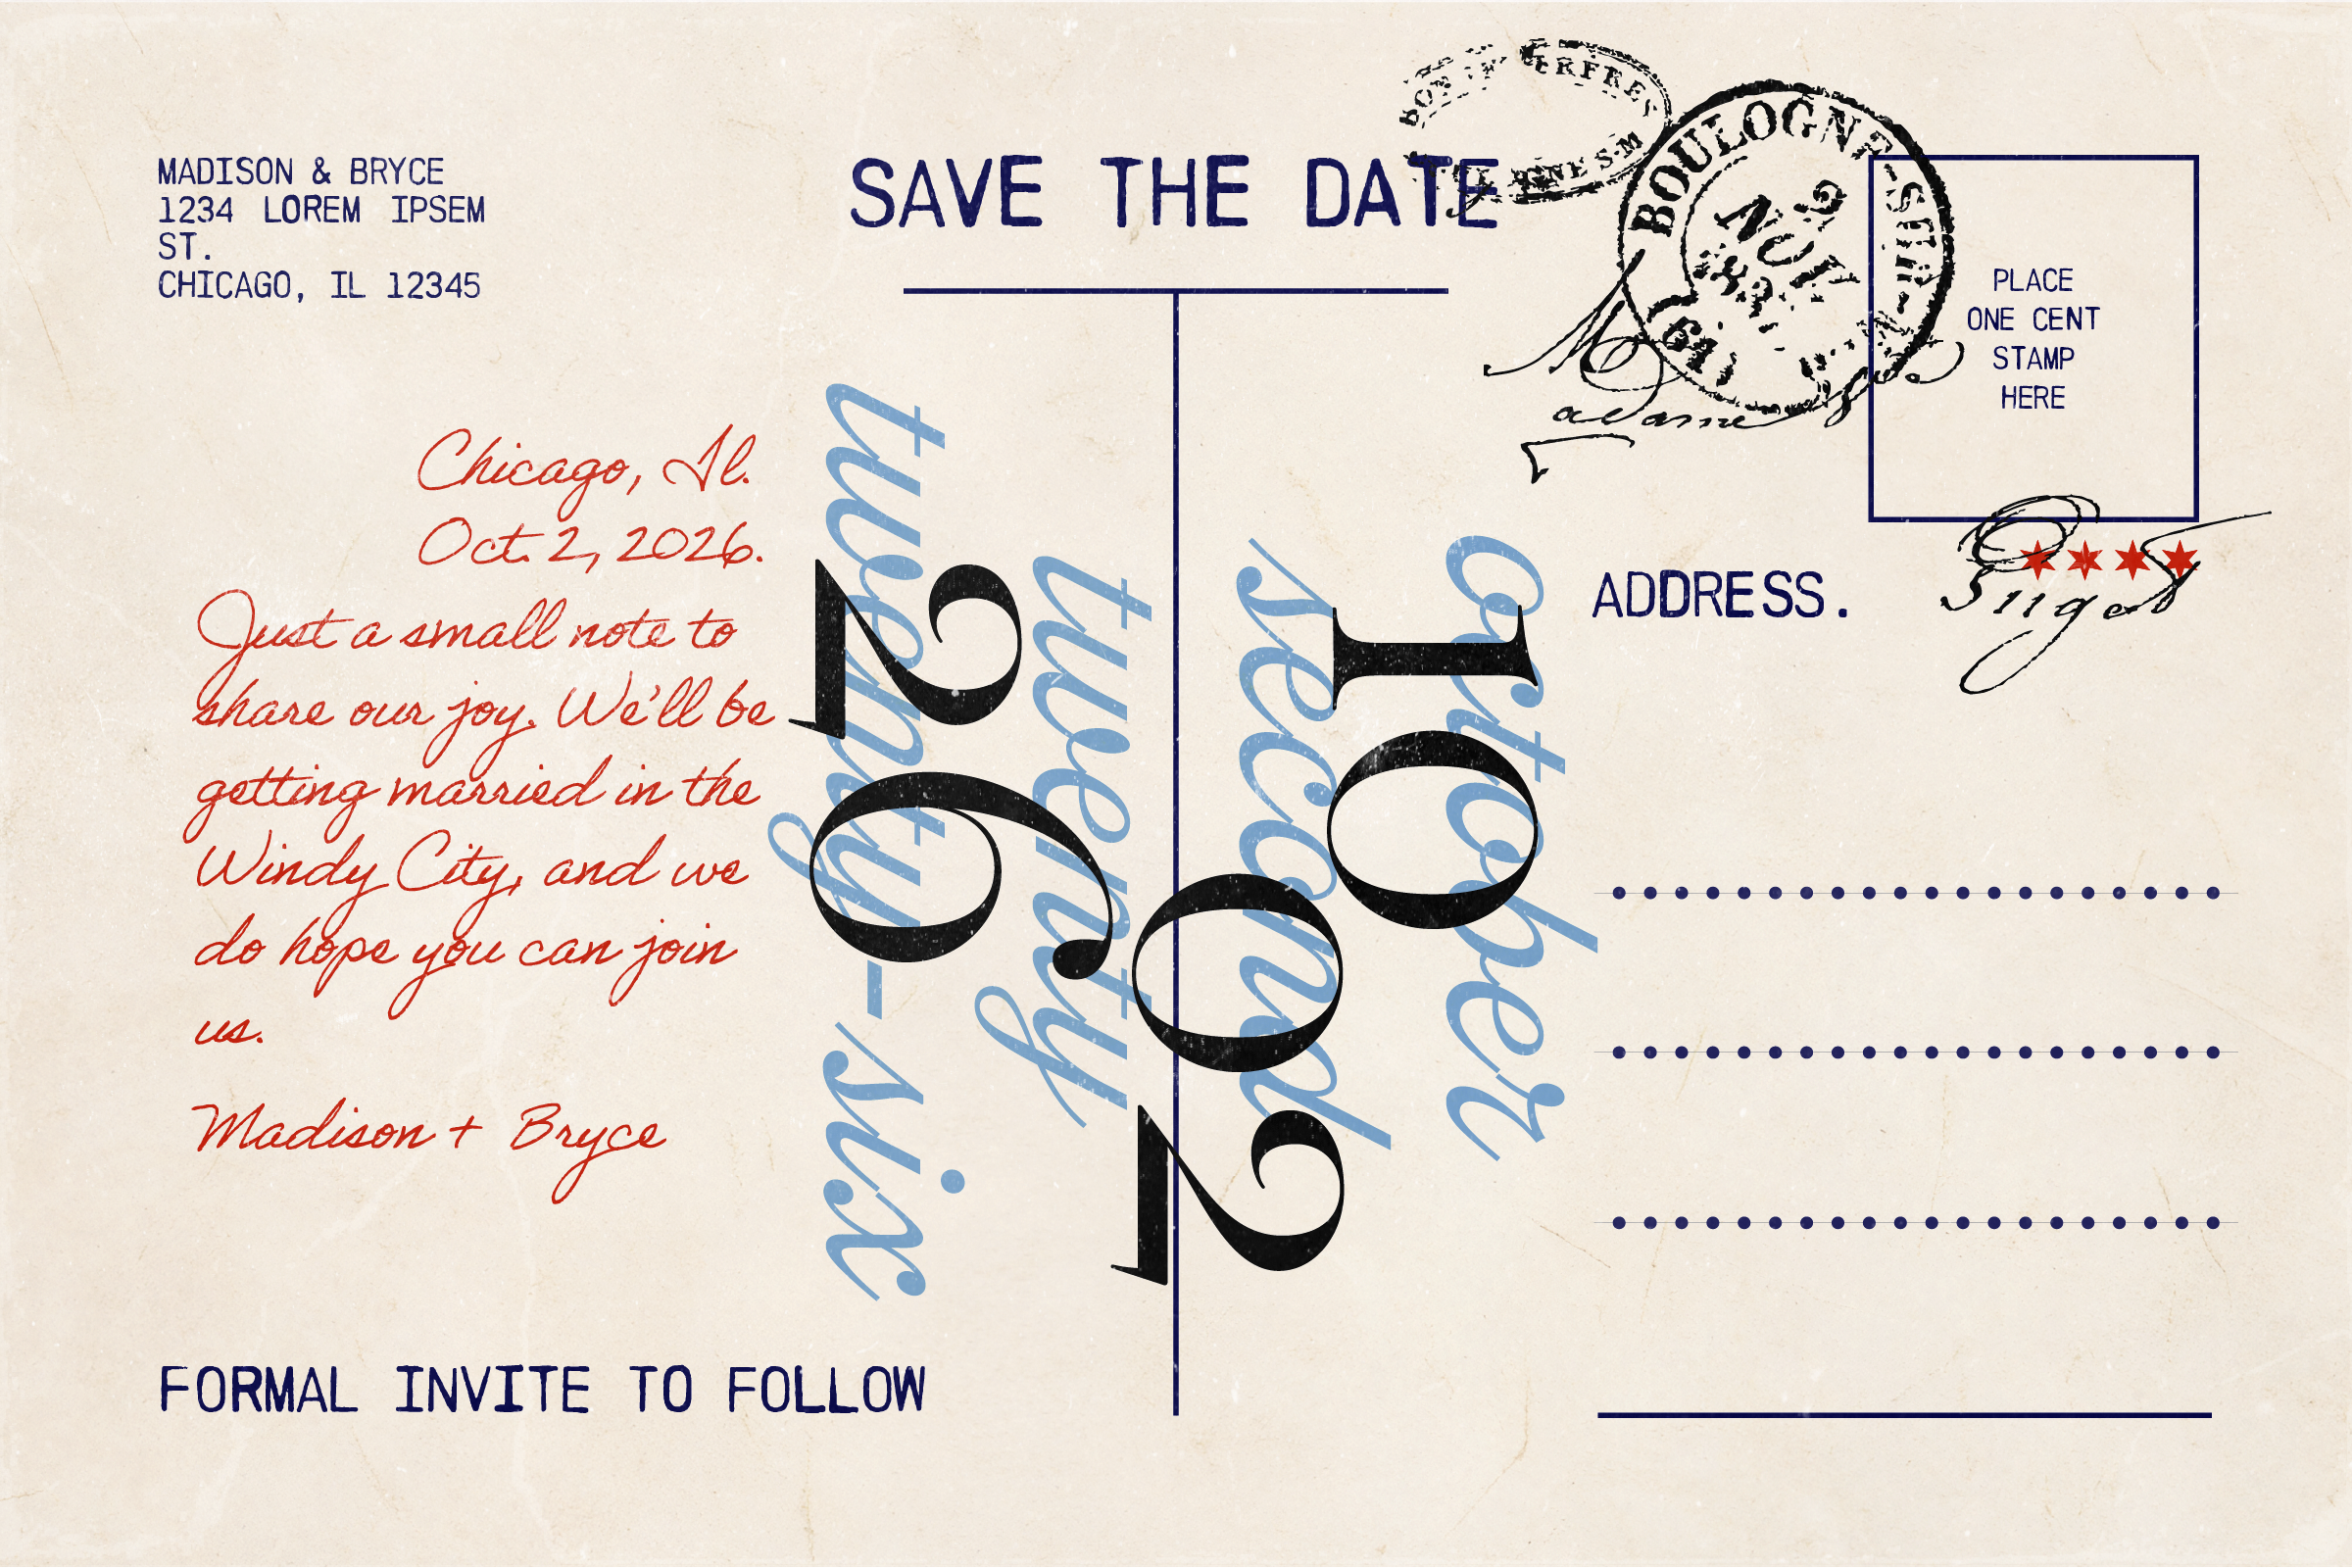 MADISON & BRYCE
1234 LOREM IPSEM
ST.
CHICAGO, IL 12345
SAVE THE DATE
BOULOGNE-SUR-
NOV
PLACE
ONE CENT
STAMP
HERE
Chicago, Il.
Oct. 2, 2026.
Just a small note to
share our joy. We'll be
getting married in the
Windy City, and we
do hope you can join
us.
Madison + Bryce
october
10
second
02
twenty
twenty-six
26
ADDRESS.
FORMAL INVITE TO FOLLOW